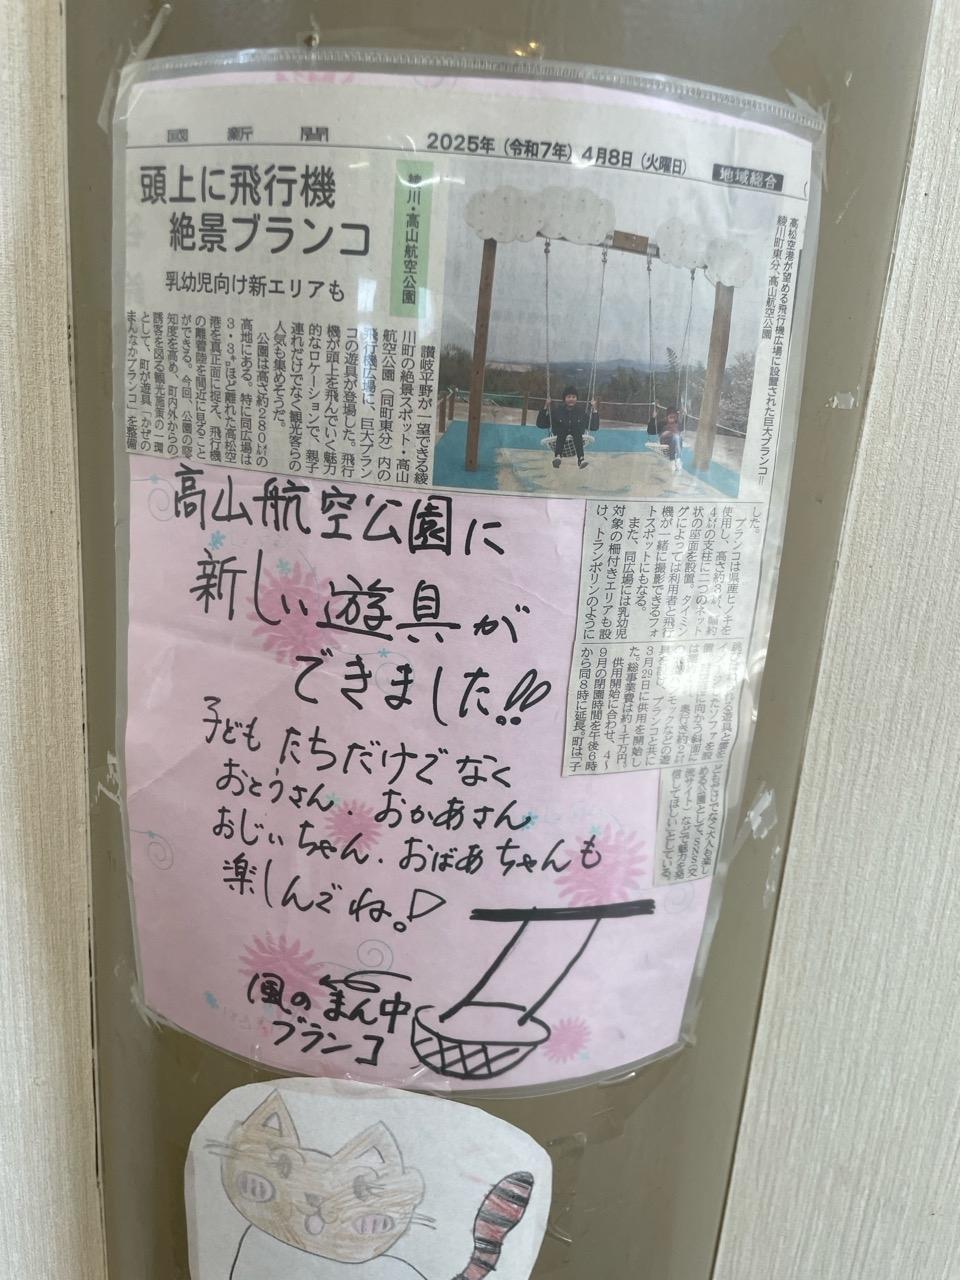 國新聞
2025年(令和7年)4月8日(火曜日)
地域総合
頭上に飛行機
絶景ブランコ
乳幼児向け新エリアも
綾川・高山航空公園
高松空港が望める飛行機広場に設置された巨大ブランコ＝
綾川町東分、高山航空公園
讃岐平野が一望できる綾
川町の絶景スポット・高山
航空公園(同町東分)内の
飛行機広場に、巨大ブラン
コの遊具が登場した。飛行
機が頭上を飛んでいく魅力
的なロケーションで、親子
連れだけでなく観光客らの
人気も集めそうだ。
公園は高さ約280㍍の
高地にある。特に同広場は
3・3㌔ほど離れた高松空
港を真正面に捉え、飛行機
の離着陸を間近に見ること
ができる。今回、公園の認
知度を高め、町内外からの
誘客を図る観光施策の一環
として、町が遊具「かぜの
まんなかブランコ」を整備
した。
ブランコは県産ヒノキを
使用し、高さ約3㍍、幅約
4㍍の支柱に二つのネット
状の座面を設置。タイミン
グによっては利用者と飛行
機が一緒に撮影できるフォ
トスポットにもなる。
また、同広場には乳幼児
対象の柵付きエリアも設
け、トランポリンのように
3月29日に供用を開始し
た。総事業費は約1千万円。
供用開始に合わせ、4〜
9月の閉園時間を午後6時
から同8時に延長。町は「子
どもだけでなく大人も楽し
める公園として、SNS(交
流サイト)などで魅力を発
信してほしい」としている。
高山航空公園に
新しい遊具が
できました!!
子どもたちだけでなく
おとうさん・おかあさん
おじいちゃん・おばあちゃんも
楽しんでね。
風のまん中
ブランコ